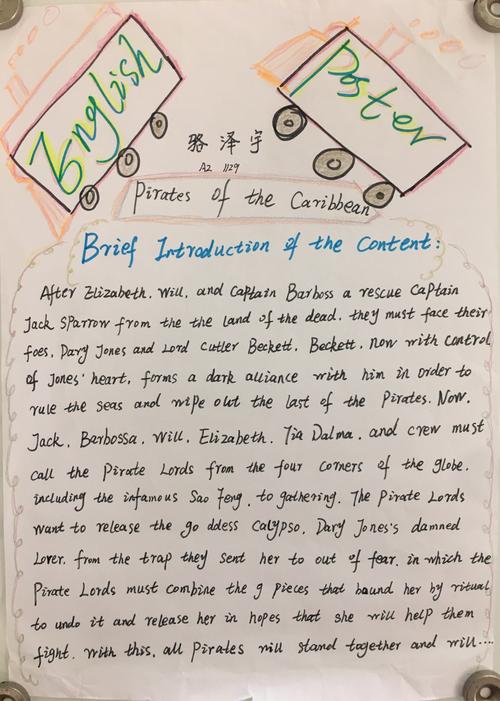 English
Poster
骆泽宇
A2 1129
Pirates of the Caribbean
Brief Introduction of the Content:
After Elizabeth. Will, and Captain Barboss a rescue Captain
Jack Sparrow from the the land of the dead. they must face their
foes, Davy Jones and Lord Cutler Beckett. Beckett. now with control
of Jones' heart, forms a dark alliance with him in order to
rule the seas and wipe out the last of the Pirates. Now.
Jack. Barbossa. Will. Elizabeth. Tia Dalma. and crew must
call the Pirate Lords from the four corners of the globe.
including the infamous Sao Feng. to gathering. The Pirate Lords
want to release the go ddess Calypso. Davy Jones's damned
Lover. from the trap they sent her to out of fear. in which the
Pirate Lords must combine the 9 pieces that bound her by ritual
to undo it and release her in hopes that she will help them
fight. With this. all Pirates will stand together and will....